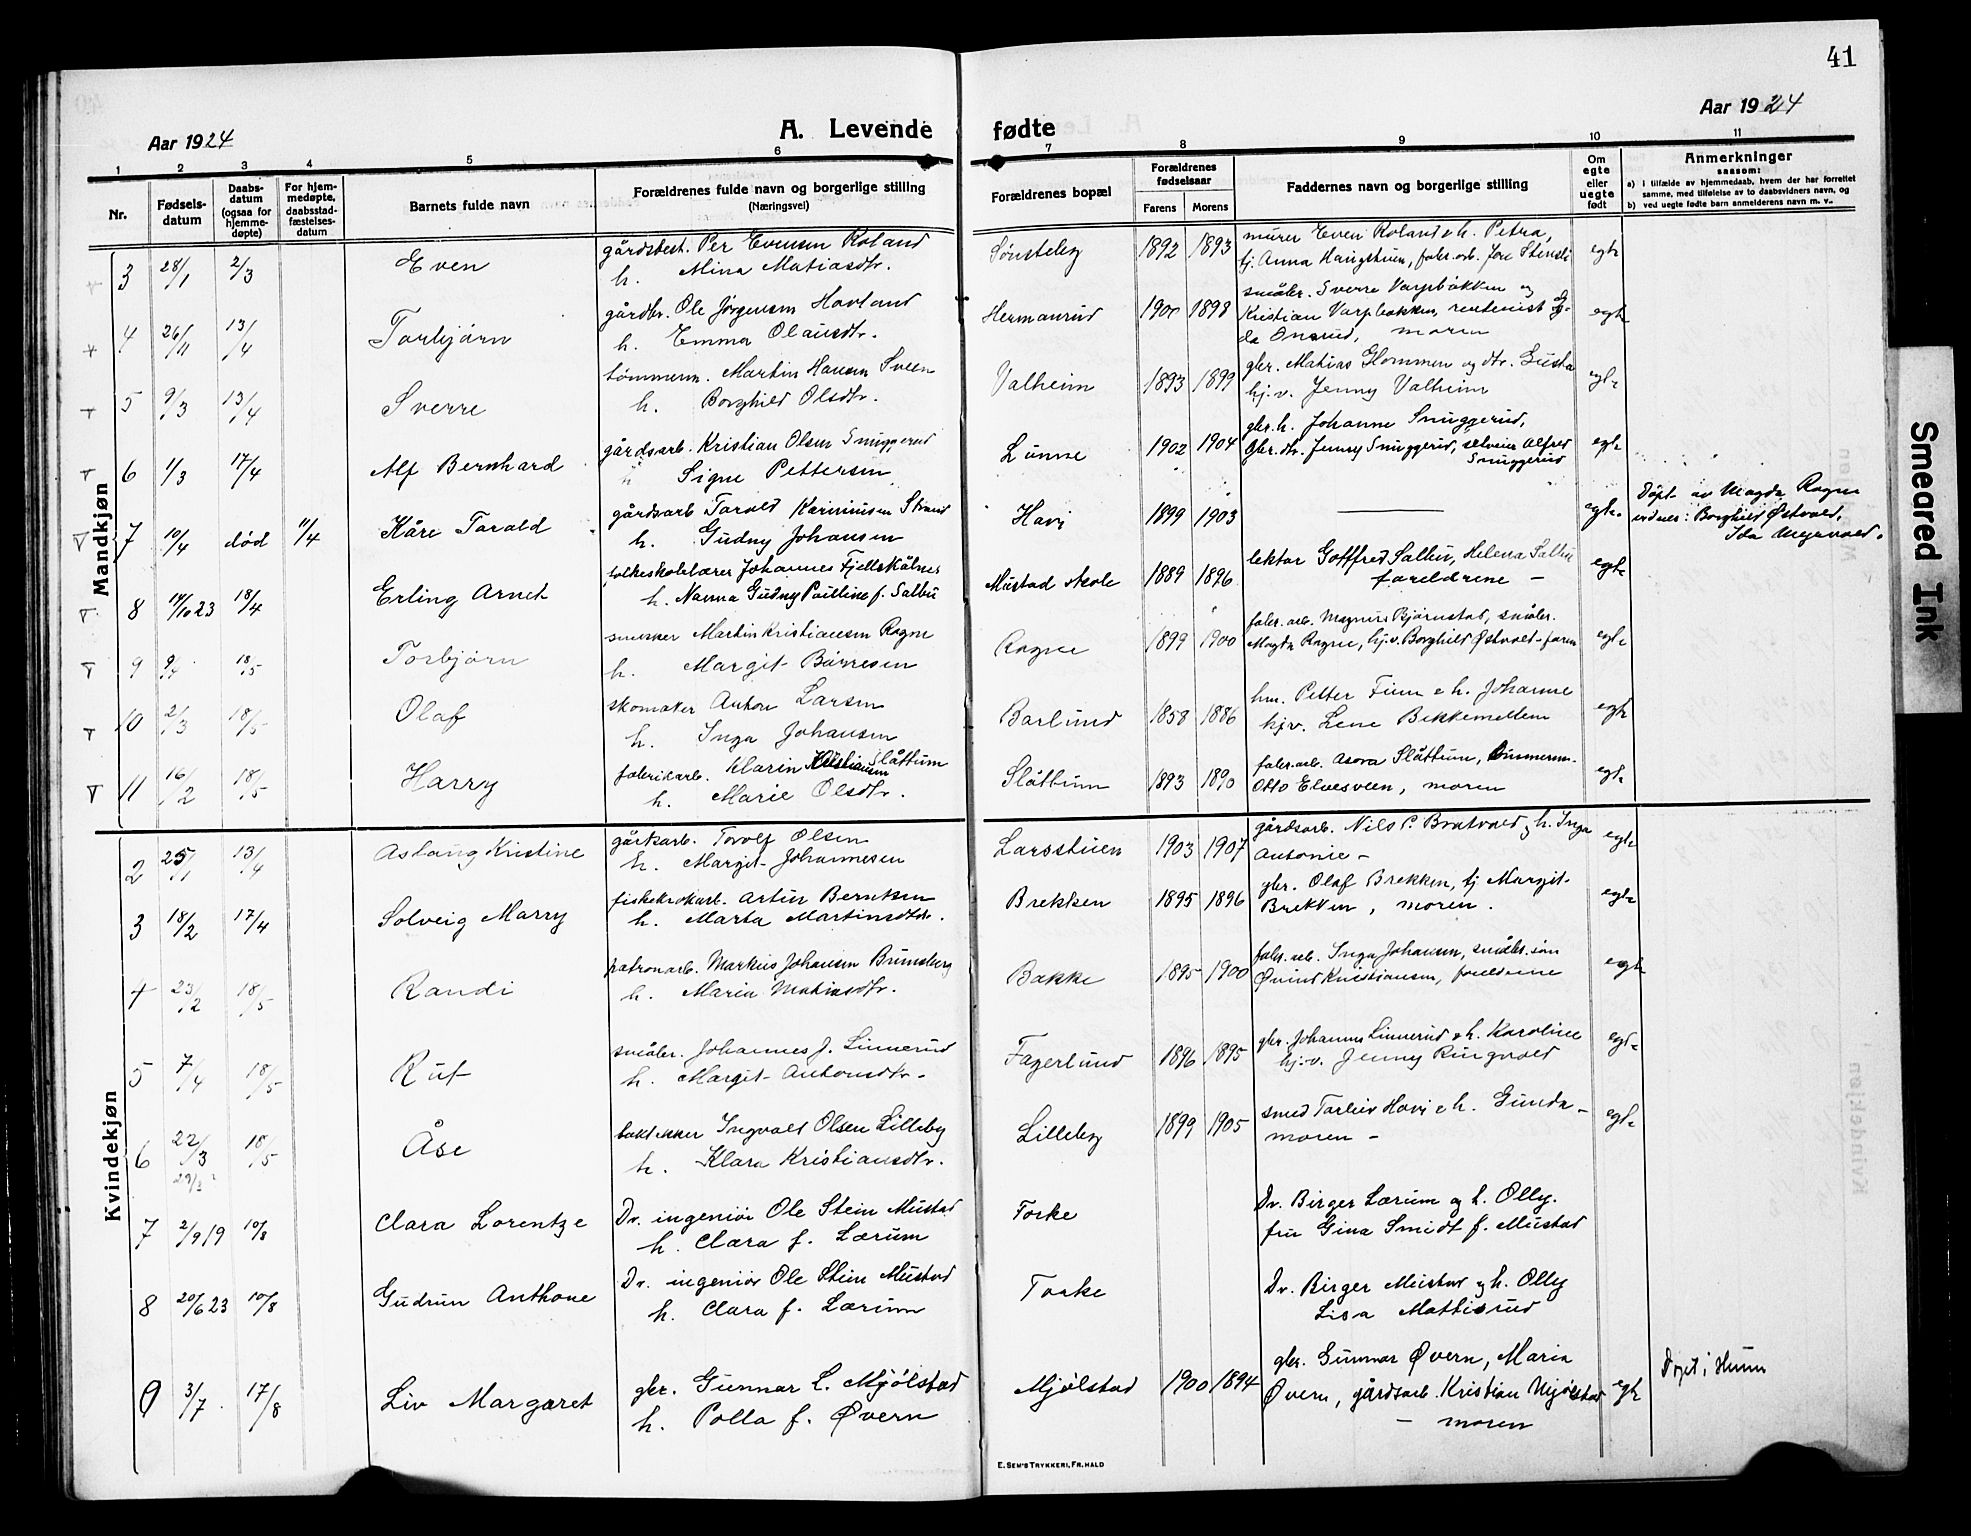 41
Aar 1924
A. Levende fødte
Aar 1924
1 2 3 4 5 6 7 8 9 10 11
Nr.
Fødsels-
datum
Daabs-
datum
(ogsaa for
hjemme-
døpte)
For hjem-
medøpte,
daabsstad-
fæstelses-
datum
Barnets fulde navn
Forældrenes fulde navn og borgerlige stilling
(Næringsvei)
Forældrenes bopæl
Forældrenes
fødselsaar
Farens
Morens
Faddernes navn og borgerlige stilling
Om
egte
eller
uegte
født
Anmerkninger
saasom:
a) i tilfælde av hjemmedaab, hvem der har forrettet
samme, med tilføielse av to daabsvidners navn, og
b) ved uegte fødte barn anmelderens navn m. v.
Mandkjøn
3 28/1 2/3 Even
gårdsbest. Per Evensen Roland
h. Mina Matiasdtr.
Sønsteby 1892 1893
murer Even Roland & h. Petra,
tj. Anna Haugstuen, fabr. arb.
egte
4 26/11 13/4 Torbjørn
gårdbr. Ole Jørgensen Hovland
h. Emma Olausdtr.
Hermanrud 1900 1898
småbr. Sverre Varpbakken og
Kristian Varpbakken, moren
egte
5 9/3 13/4 Sverre
tømmerm. Martin Hansen Sveen
h. Borghild Olsdtr.
Valheim 1893 1899
gbr. Matias Glommen og dtr. Gusta
hj.v. Jenny Valheim
egte
6 1/3 17/4 Alf Bernhard
gårdsarb. Kristian Olsen Snuggerud
" Signe Pettersen
Lunne 1902 1904
gbr. h. Johanne Snuggerud,
Gbr. dtr. Jenny Snuggerud, selveier Alfred
Snuggerud
egte
7 10/4 død 11/4 Kåre Torald
gårdsarb. Torald Kariniusen Strand
h. Gudny Johansen
Hovi 1899 1903
egte.
Døpt av Magda Ragne
vidner: Borghild Østvold,
Ida
8 14/10 23 18/4 Erling Arnet
folkeskolelærer Johannes Fjellskålnes
h. Nanna Gudny Pauline f. Salbu
Mustad skole 1889 1896
lektor Gottfred Salbu, Helena Salbu
foreldrene -
egte
9 9/4 18/5 Torbjørn
snekker Martin Kristiansen Ragne
h. Margit Børresen
Ragne 1899 1900
fabr. arb. Magnus Bjørnstad, småbr.
Magda Ragne, hj.v. Borghild Østvolt - faren
egte
10 2/3 18/5 Olaf
skomaker Anton Larsen
h. Inga Johansen
Barlund 1858 1886
hm. Petter Finn & h. Johanne
hjv. Lene Bekkemellem
egte
11 16/2 18/5 Harry
fabrikarb. Klarin Kristiansen Slåttum
h. Marie Olsdtr.
Slåttum 1893 1890
fabr. arb. Asora Slåttum, tømmerm.
Otto Elvesveen, moren
egte
Kvindekjøn
2 25/1 13/4 Aslaug Kristine
gårdsarb. Torolf Olsen
h. Margit Johannesen
Larsstuen 1903 1907
gårdsarb. Nils P. Bratvold & h. Inga
Antonie -
egte
3 18/2 17/4 Solveig Marry
fiskekrokarb. Artur Berntsen
h. Marta Martinsdtr.
Brekken 1895 1896
gbr. Olaf Brekken, tj Margit
Brekken, moren.
egte
4 23/2 18/5 Randi
patronarb. Markus Johansen Brunsberg
h. Maria Matiasdtr.
Bakke 1895 1900
fabr. arb. Inga Johansen, småbr. søn
Øvind Kristiansen, foreldrene
egte
5 7/4 18/5 Rut
småbr. Johannes J. Linnerud
h. Margit Antonsdtr.
Fagerlund 1896 1895
gbr. Johannes Linnerud & h. Karoline
hj.v. Jenny Ringvold
egte
6 22/3 18/5 Åse
29/3
Ingvald Olsen Lilleby
h. Klara Kristiansdtr.
Lilleby 1899 1905
smed Torleiv Hovi & h. Gunda -
moren -
egte
7 2/9 19 10/8 Clara Lorentze
Dr. ingeniør Ole Stein Mustad
h. Clara f. Lærum
Torke
Dr. Birger Lærum og h. Olly.
fru Gina Smidt f. Mustad
8 20/6 23 10/8 Gudrun Anthone
Dr. ingeniør Ole Stein Mustad
h. Clara f. Lærum
Torke
Dr. Birger Mustad og h. Olly
Lisa Mattisrud
9 3/7 17/8 Liv Margaret
gbr. Gunnar L. Mjølstad
h. Polla f. Øvern
Mjølstad 1900 1894
gbr. Gunnar Øvern, Maria
Øvern, gårdsarb. Kristian Mjølstad
- moren
egte
Døpt i Hunn
E. SEM'S TRYKKERI, FR.HALD
Smeared Ink